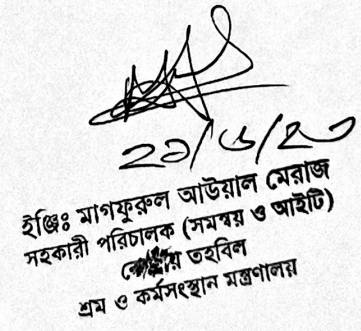 ইঞ্জিঃ মাগফুরুল আউয়াল মেরাজ
সহকারী পরিচালক (সমন্বয় ও আইটি)
তহবিল
শ্রম ও কর্মসংস্থান মন্ত্রণালয়